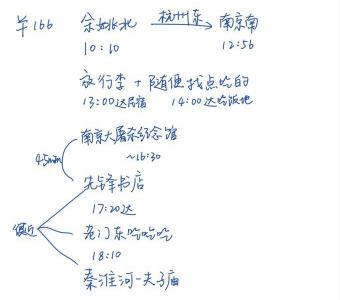 羊166 余姚北 杭州东 南京南
10:10 12:56
放行李 + 随便找点吃的
13:00达民宿 14:00达吃饭地
南京大屠杀纪念馆
~16:30
45min
先锋书店
17:20达
老门东吃吃吃
18:10
秦淮河-夫子庙